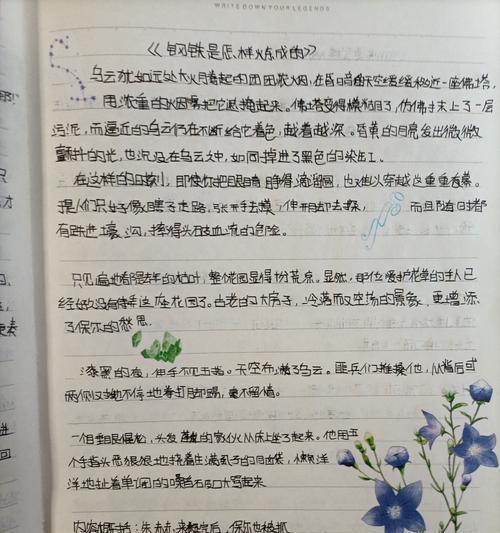 WRITE DOWN YOUR LEGENDS
《钢铁是怎样炼成的》
乌云犹如远处火冒起的团团浓烟，在昏暗的天空缓缓移近一座佛塔，
用浓重的烟雾把它遮掩起来。佛塔变得模糊了，仿佛抹上了一层
污泥，而逼近的乌云仍在不断给它着色，越着越深。昏黄的月亮发出微微
颤抖的光，也沉没在乌云之中，如同掉进了黑色的染缸。
在这样的时刻，即使你把眼睛睁得滴溜圆，也难以穿越这重重夜幕。
于是人们只好像瞎子走路，张开手去摸，伸开脚去探，而且随时都
有跌进壕沟，摔得头破血流的危险。
只见遍地都是的枯叶，整个花园显得十分荒凉。显然，那位爱护花草的主人已
经没有住在这座花园了。古老的大房子，冷落而又空荡的景象，更增添
了保尔的愁思。
漆黑的夜，伸手不见五指。天空布满了乌云。匪兵们推搡他，从背后或
两侧不停地拳打脚踢，毫不留情。
一个睡眼惺忪，头发蓬乱的家伙从床上坐了起来。他用五
个手指头恶狠狠地挠着生满虱子的，懒洋
洋地扯着单调的嗓音大骂起来
内容概括：朱赫来 后，保尔也被抓